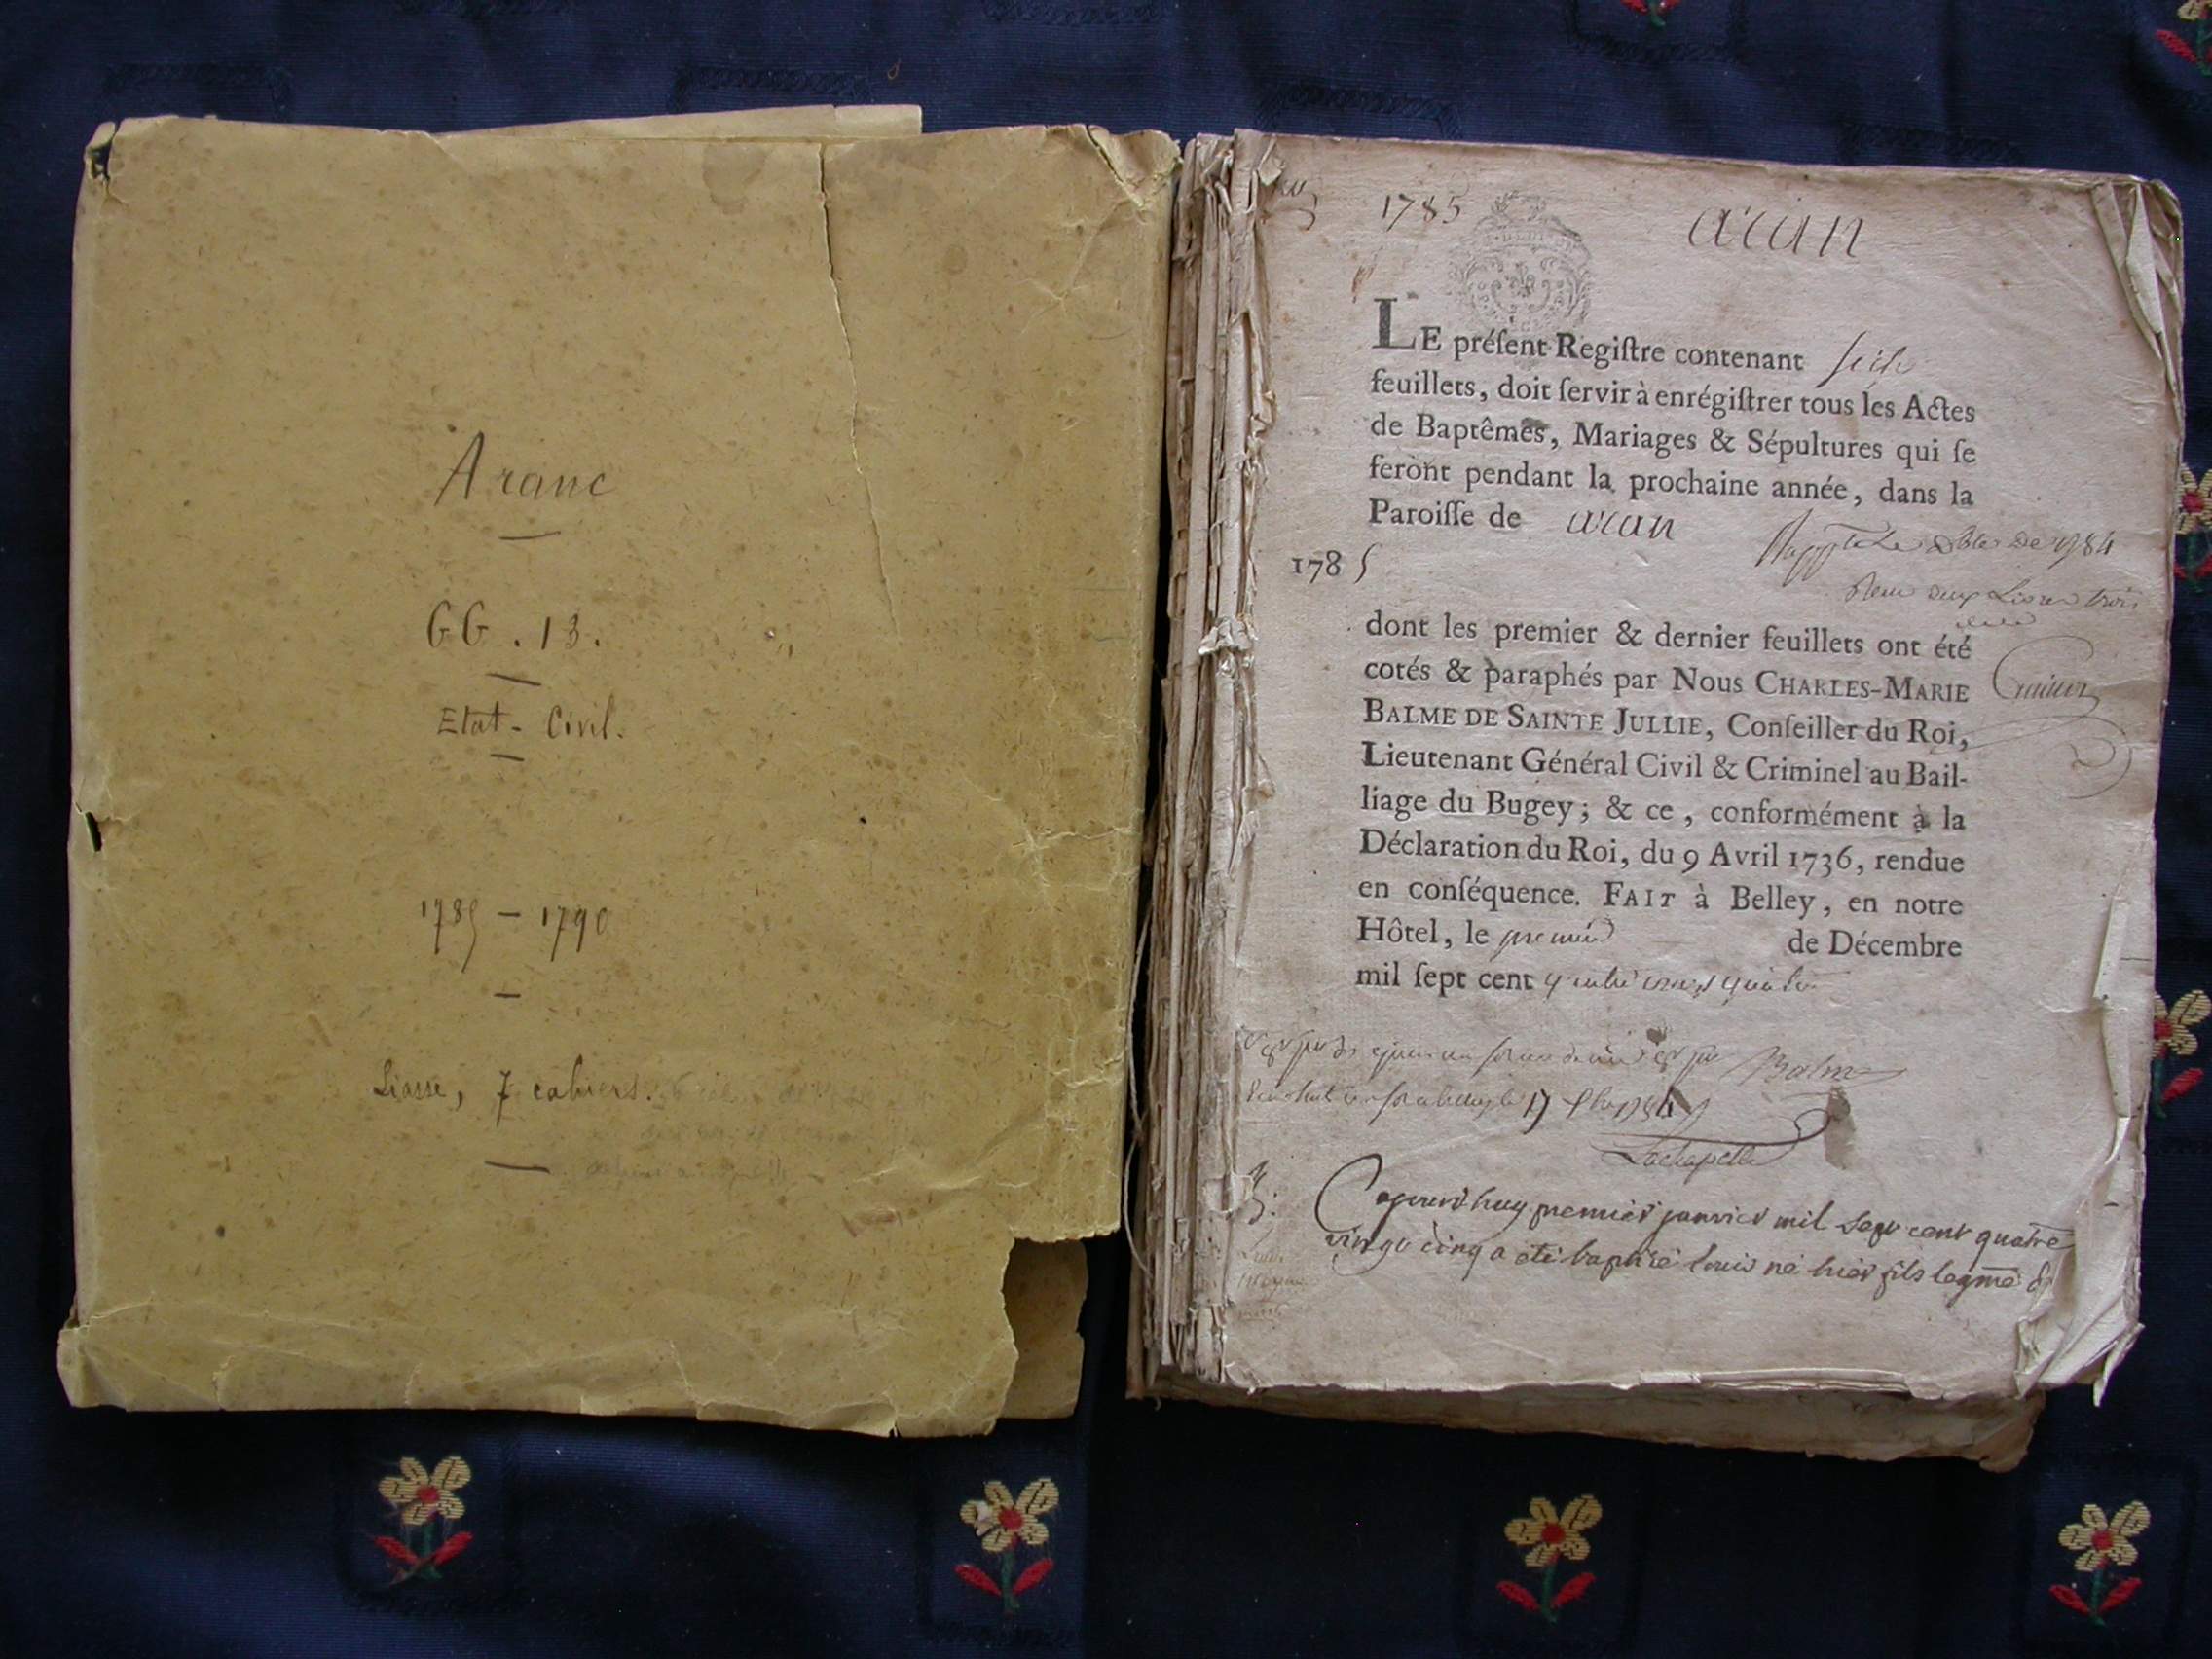 Aranc
GG. 13.
Etat-Civil.
1785 – 1790
Liasse, 7 cahiers.
1785
aran
LE préſent Regiſtre contenant
feuillets, doit ſervir à enrégiſtrer tous les Actes
de Baptêmes, Mariages & Sépultures qui ſe
feront pendant la prochaine année, dans la
Paroiſſe de aran
de 1784
deux Livres trois
1785
dont les premier & dernier feuillets ont été
cotés & paraphés par Nous CHARLES-MARIE
BALME DE SAINTE JULLIE, Conſeiller du Roi,
Lieutenant Général Civil & Criminel au Bail-
liage du Bugey ; & ce, conformément à la
Déclaration du Roi, du 9 Avril 1736, rendue
en conſéquence. FAIT à Belley, en notre
Hôtel, le premier de Décembre
mil ſept cent quatre vingt quatre
Balme
Lachapelle
B.
aujourd'huy premier janvier mil sept cent quatre
vingt cinq a été baptisé louis né hier fils legme de